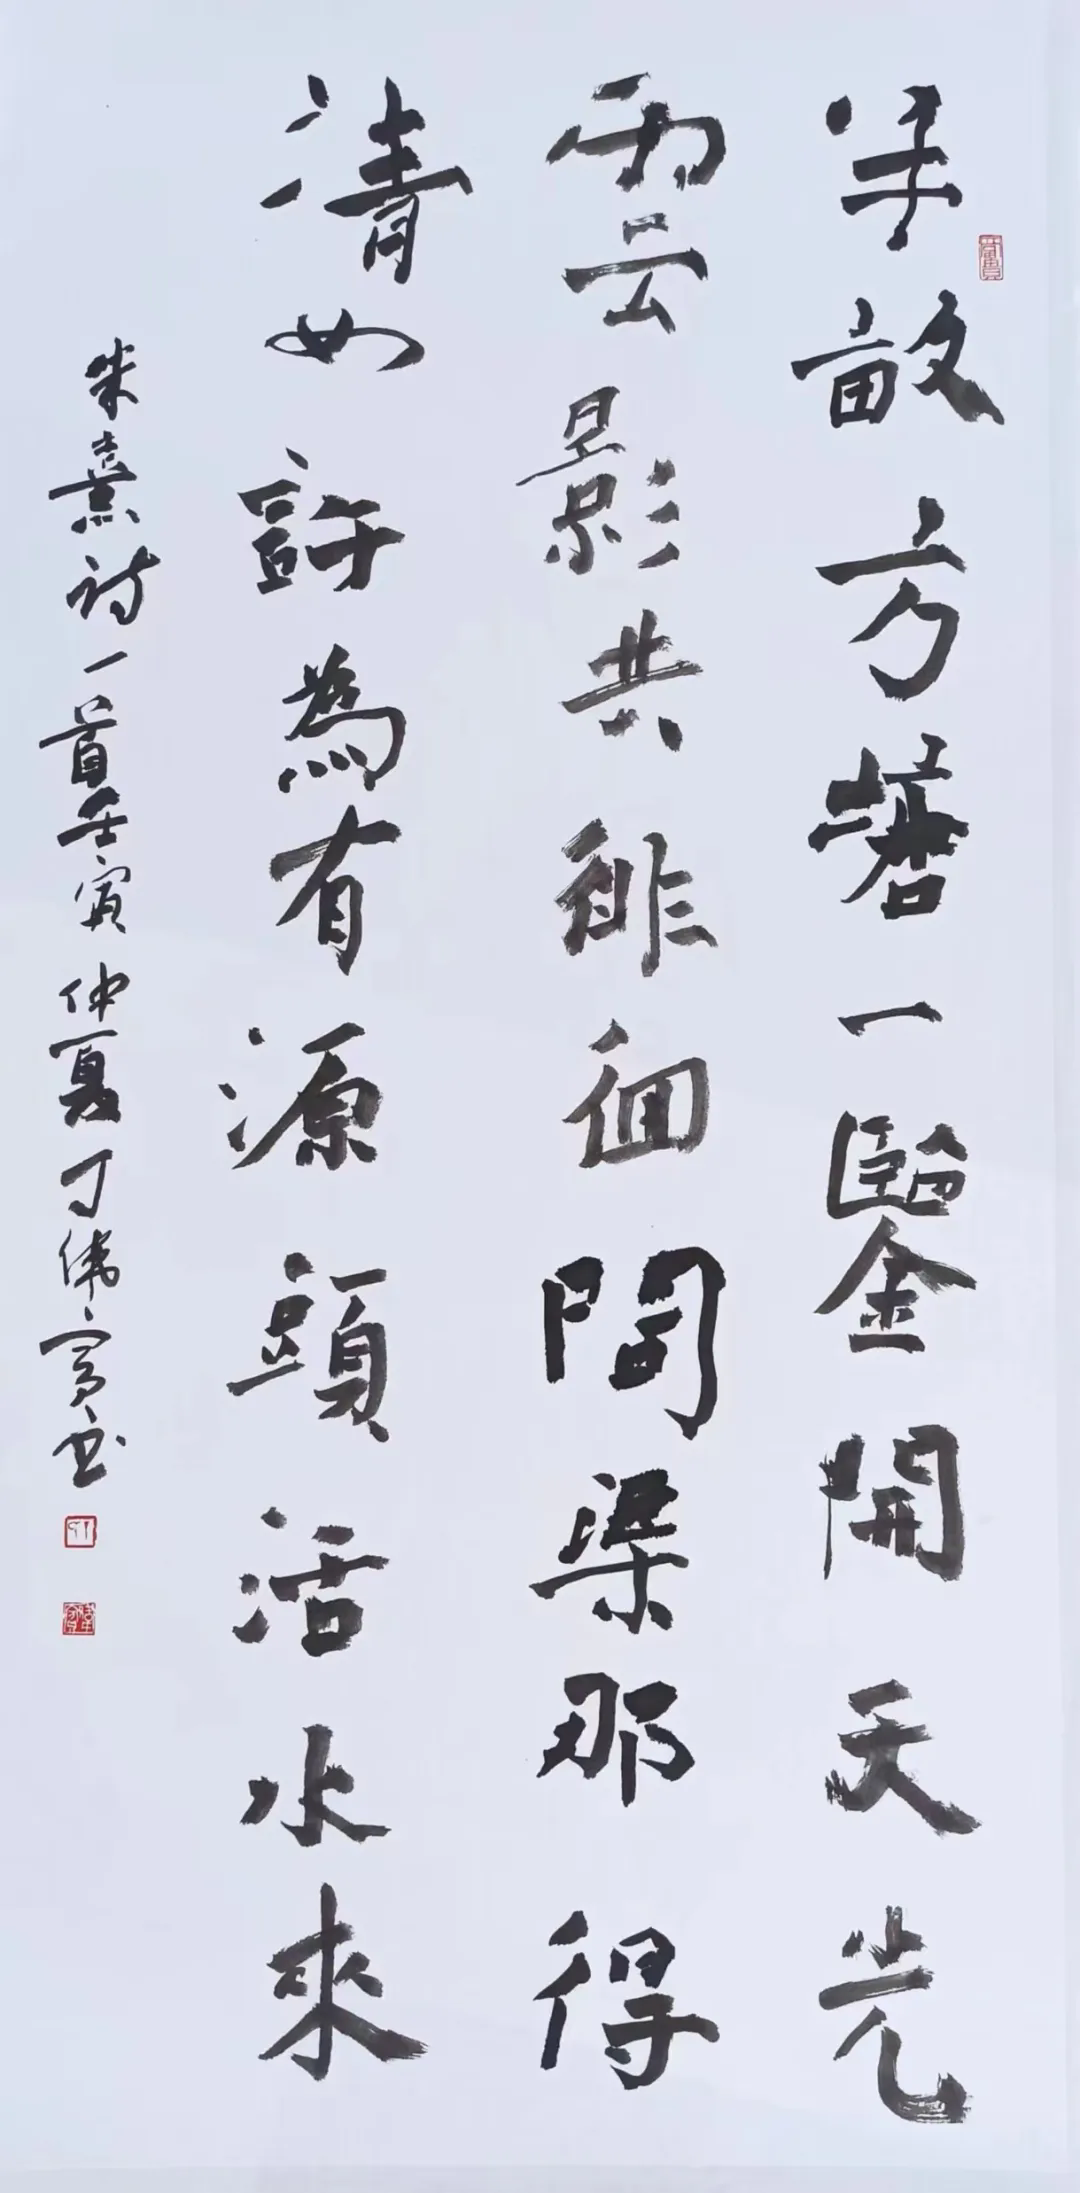 半畝方塘一鑒開天光
雲影共徘徊問渠那得
清如許為有源頭活水來
朱熹诗一首壬寅仲夏丁偉賓书